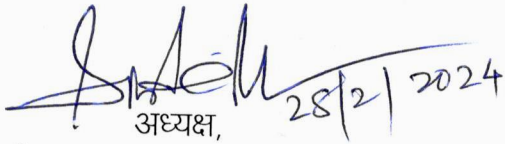 28/2/2024
अध्यक्ष,